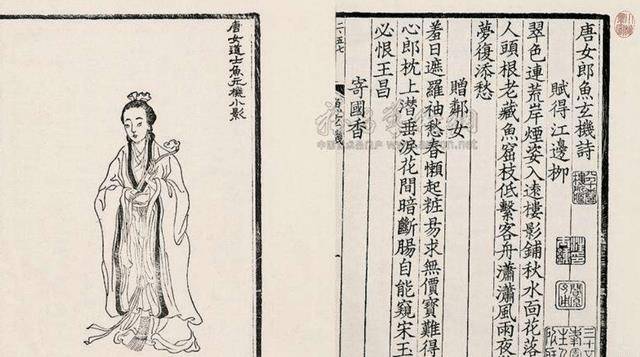 唐女郎魚玄機詩
賦得江邊柳
翠色連荒岸煙姿入遠樓影鋪秋水面花落
人頭根老藏魚窟枝低繫客舟瀟瀟風雨夜
夢復添愁
贈鄰女
羞日遮羅袖愁春懶起粧易求無價寶難得
心郎枕上潛垂淚花間暗斷腸自能窺宋玉
必恨王昌
寄國香
唐女道士魚元機小影